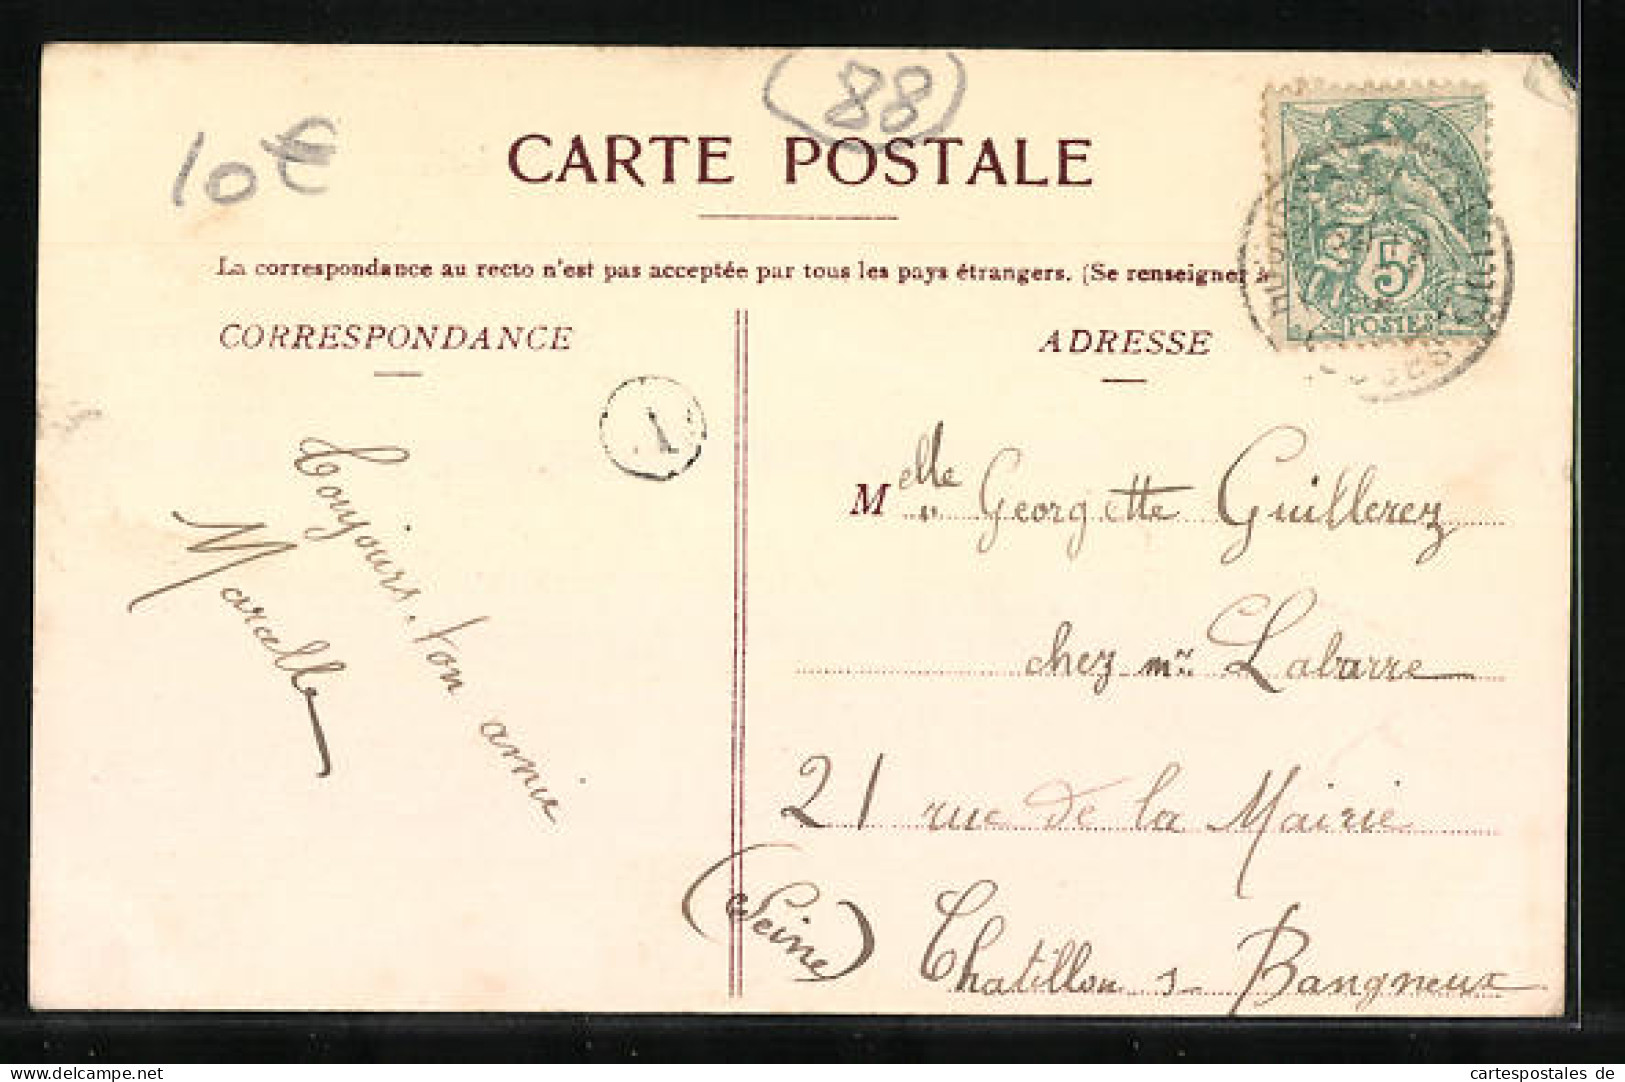 (88)
10€
CARTE POSTALE
La correspondance au recto n'est pas acceptée par tous les pays étrangers. (Se renseigner à
CORRESPONDANCE
ADRESSE
5
POSTES
1
Toujours ton amie
Marcelle
Melle Georgette Guillerez
chez mr Labarre
21 rue de la Mairie
Chatillon s Bangneux
(Seine)
www.delcampe.net
cartespostales de